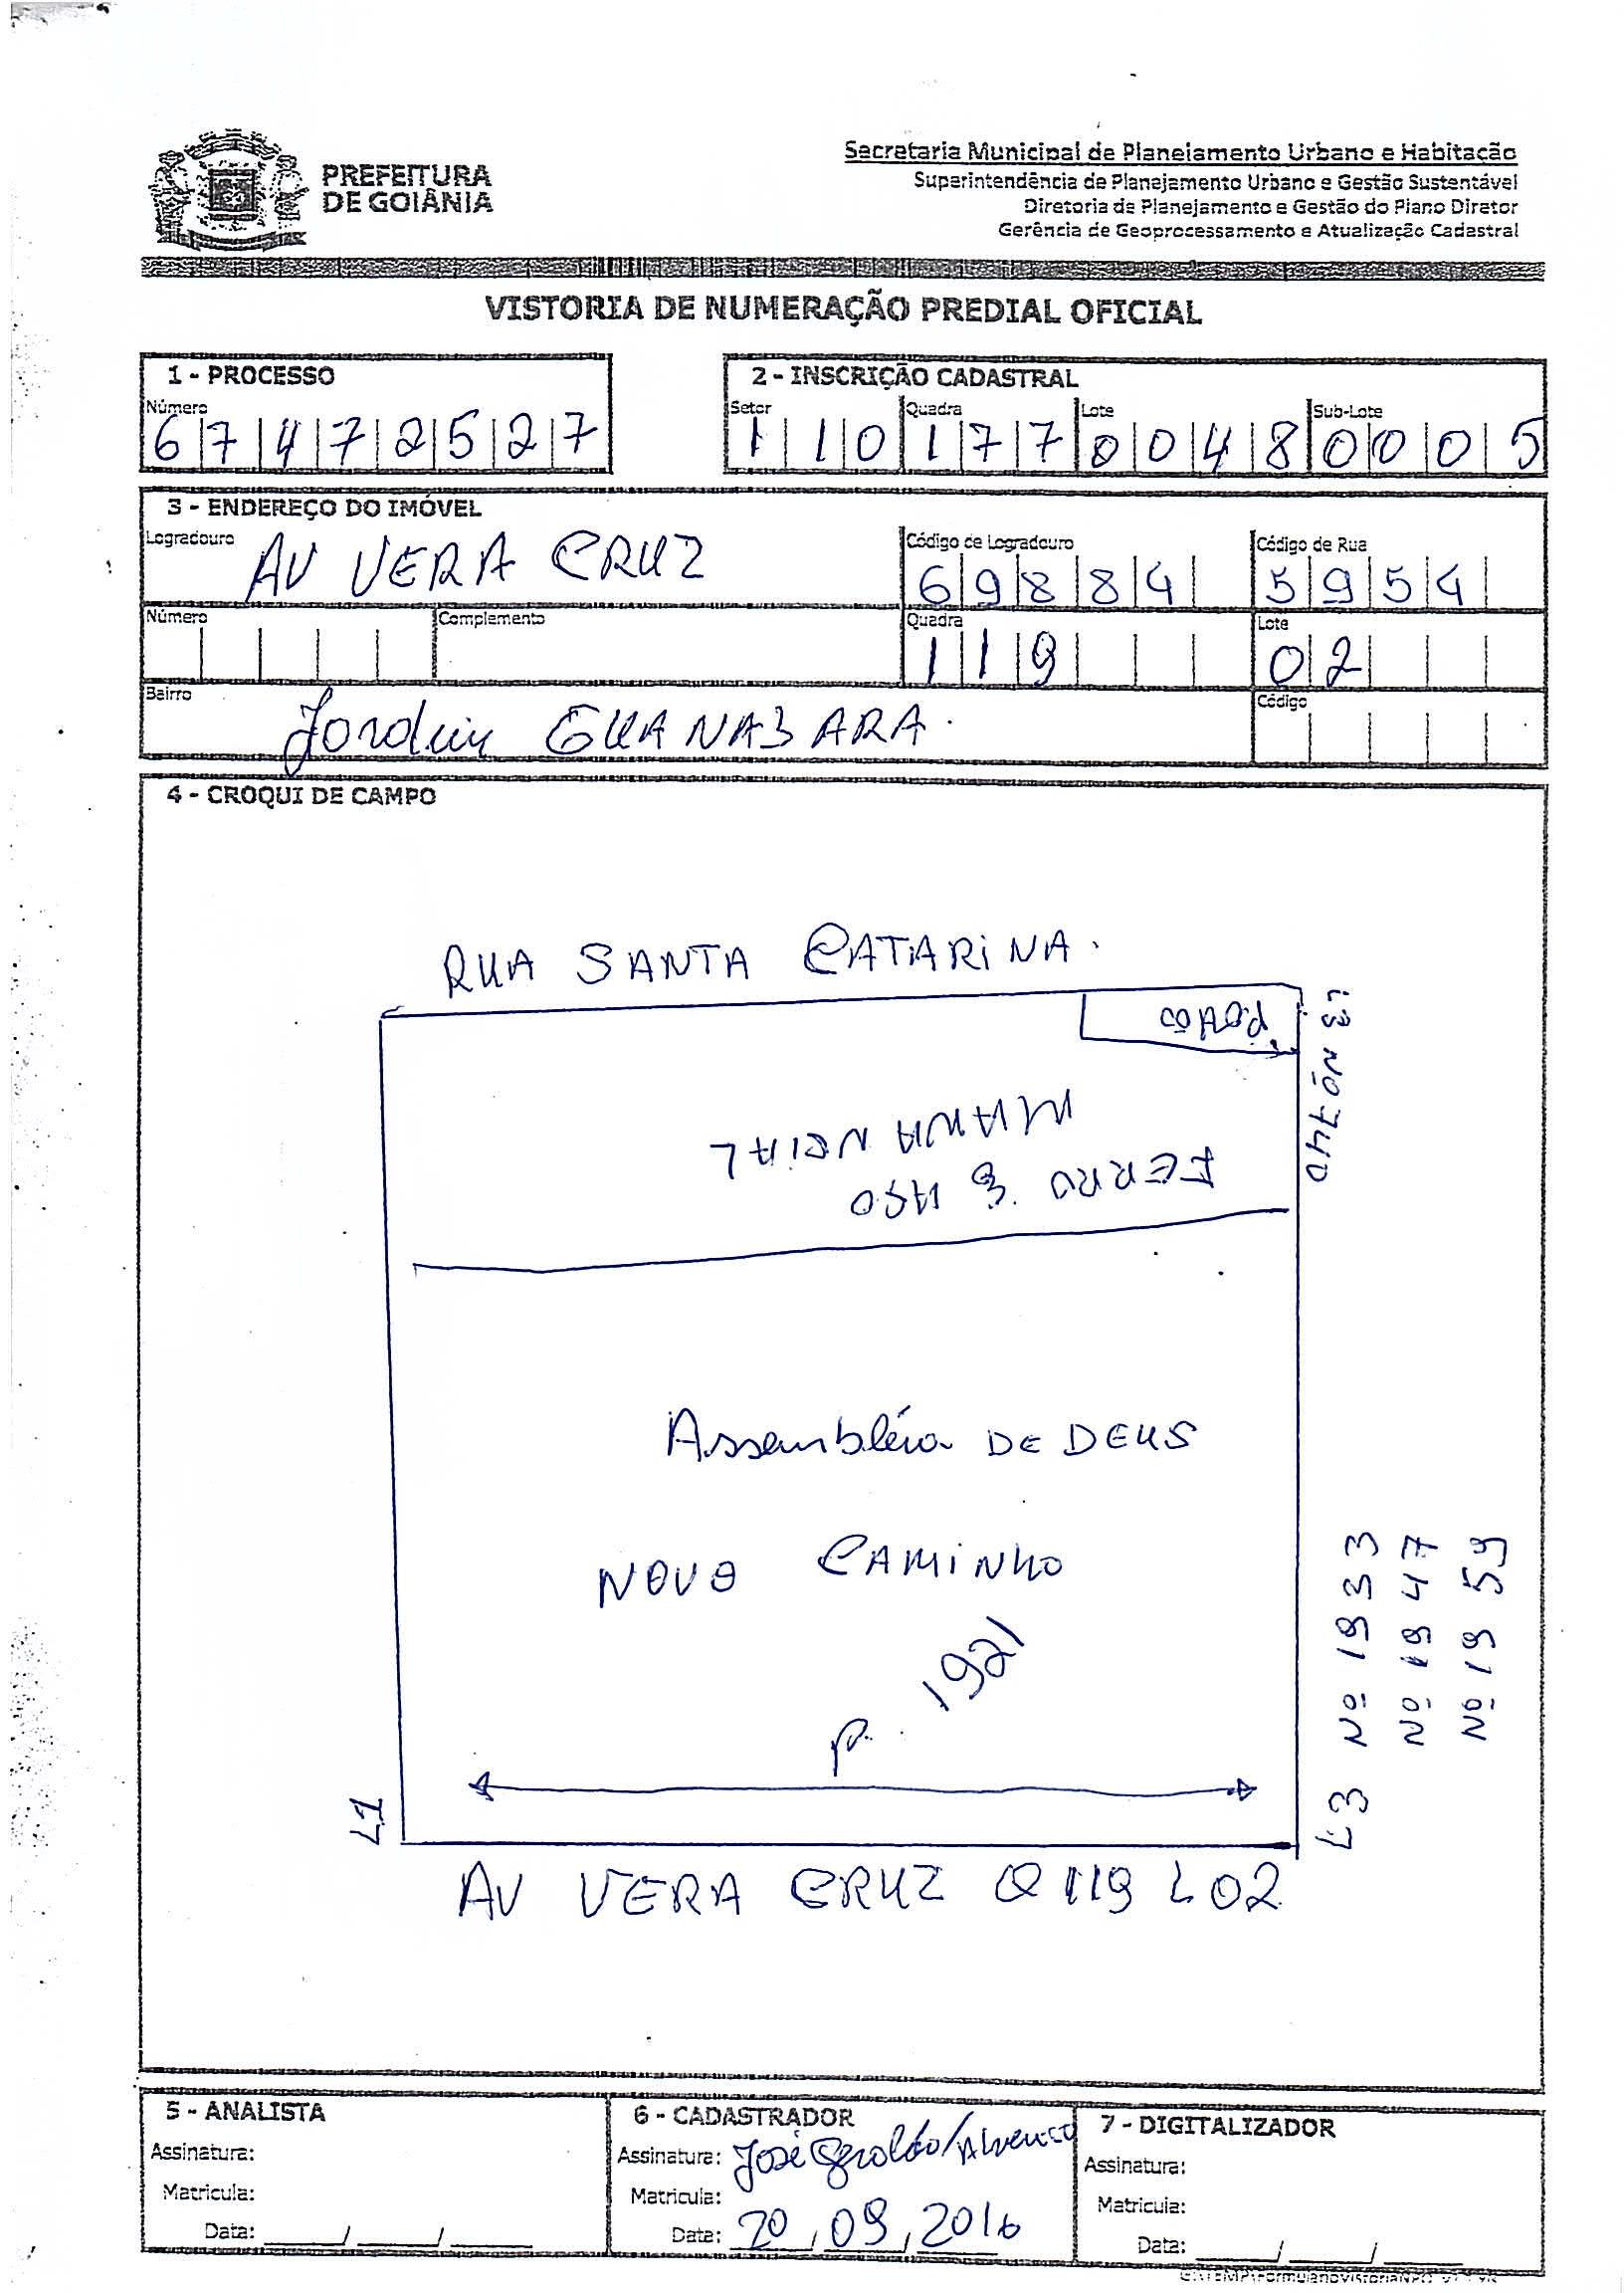 PREFEITURA
DE GOIÂNIA
Secretaria Municipal de Planejamento Urbano e Habitação
Superintendência de Planejamento Urbano e Gestão Sustentável
Diretoria de Planejamento e Gestão do Plano Diretor
Gerência de Geoprocessamento e Atualização Cadastral
VISTORIA DE NUMERAÇÃO PREDIAL OFICIAL
1 - PROCESSO
Número
67472527
2 - INSCRIÇÃO CADASTRAL
Setor Quadra Lote Sub-Lote
110 177 0048 0005
3 - ENDEREÇO DO IMÓVEL
Logradouro Código de Logradouro Código de Rua
AV VERA CRUZ 69884 5954
Número Complemento Quadra Lote
119 02
Bairro Código
Jardim GUANABARA.
4 - CROQUI DE CAMPO
RUA SANTA CATARINA.
L3 Nº 740
FERRO E AÇO
Assembléia DE DEUS
NOVO CAMINHO
P. 1921
L1
L3 Nº 1933
Nº 1947
Nº 1959
AV VERA CRUZ Q 119 L 02
5 - ANALISTA
Assinatura:
Matricula:
Data: ___/___/___
6 - CADASTRADOR
Assinatura: José Geraldo
Matricula:
Data: 20/09/2016
7 - DIGITALIZADOR
Assinatura:
Matricula:
Data: ___/___/___